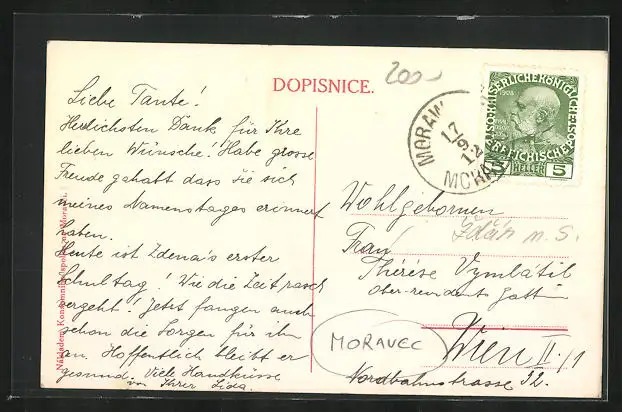 DOPISNICE.
200-
Liebe Tante!
Herlichsten Dank für Ihre
lieben Wünsche! Habe grosse
Freude gehabt dass Sie sich
meines Namenstages erinnert
haben.
Heute ist Zdena's erster
Schultag! Wie die Zeit rasch
vergeht! Jetzt fangen auch
schon die Sorgen für ihn
an. Hoffentlich bleibt er
gesund. Viele Handküsse
von Ihrer Lida.
Nákladem Konsumního spolku
MORAW
17
9
12
MORA
KAISERLICHE KÖNIGLICHE
ÖSTERREICHISCHE
1908
HELLER
5
Wohlgeborenen
Žďár n. S.
Frau
Thérèse Vymlátil
Ober-revidents Gattin
Wien II/1
Nordbahnstrasse 32.
MORAVEC